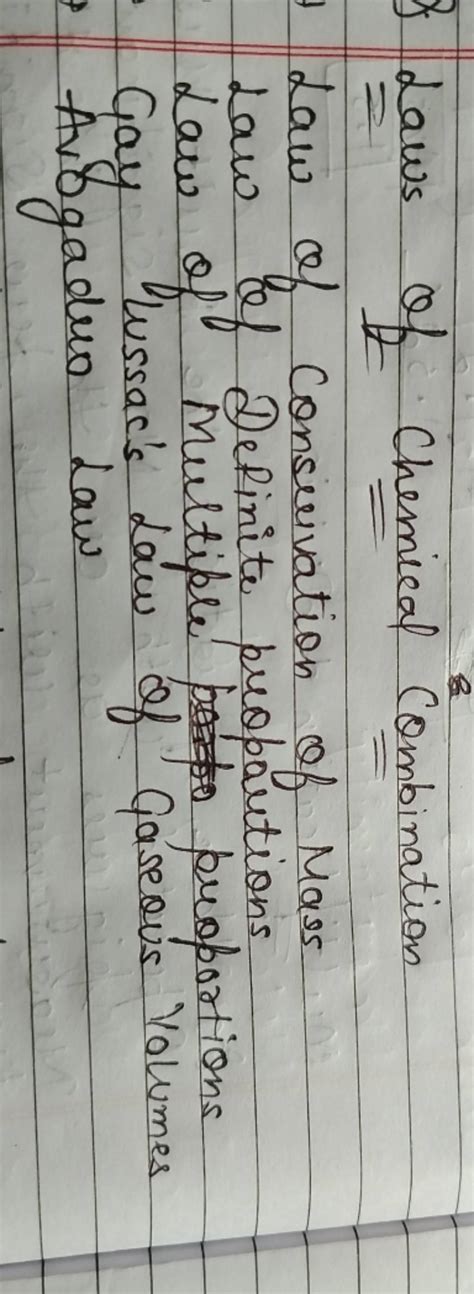 Laws of Chemical Combination
Law of Conservation of Mass
Law of Definite propautions
Law of Multiple proportions
Gay Lussac's Law of Gaseous Volumes
Avogadro Law